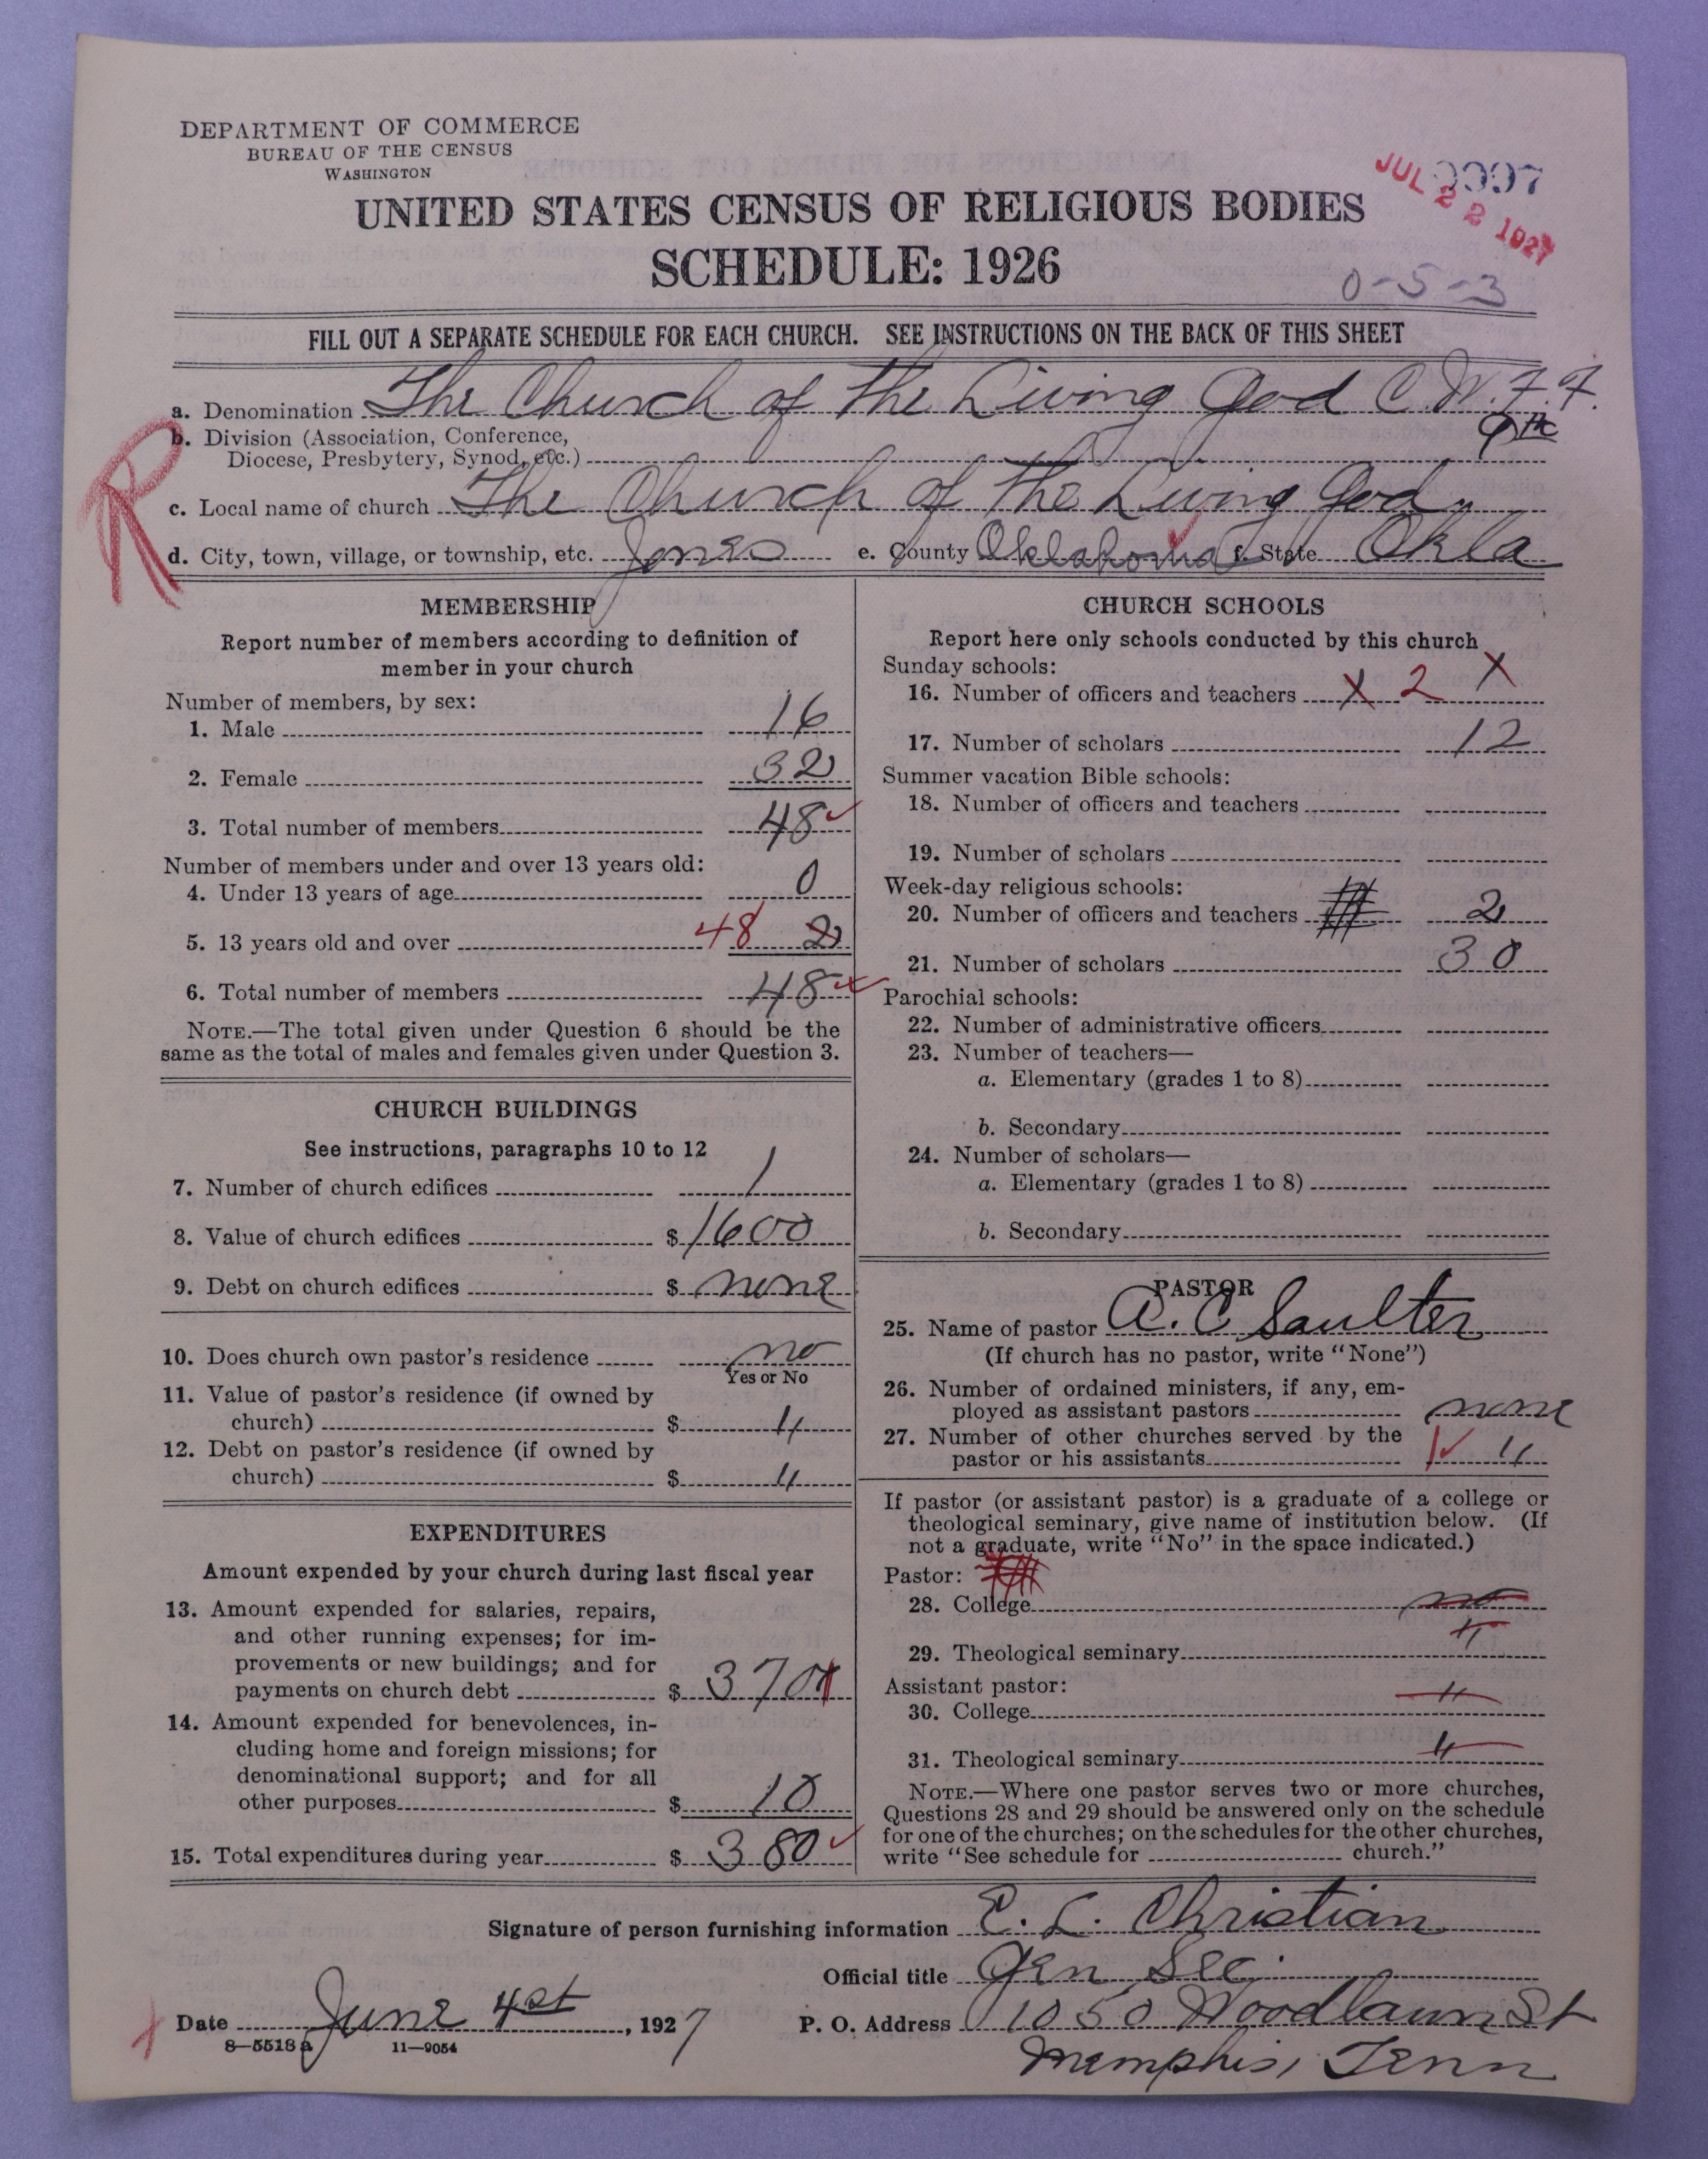 DEPARTMENT OF COMMERCE
BUREAU OF THE CENSUS
WASHINGTON
JUL 22 1927
UNITED STATES CENSUS OF RELIGIOUS BODIES
SCHEDULE: 1926
0-5-3
FILL OUT A SEPARATE SCHEDULE FOR EACH CHURCH. SEE INSTRUCTIONS ON THE BACK OF THIS SHEET
R
a. Denomination The Church of the Living God C.W.F.F.
b. Division (Association, Conference,
Diocese, Presbytery, Synod, etc.)
c. Local name of church The Church of the Living God
d. City, town, village, or township, etc. Jones e. County Oklahoma f. State Okla
MEMBERSHIP
Report number of members according to definition of
member in your church
Number of members, by sex:
1. Male 16
2. Female 32
3. Total number of members 48
Number of members under and over 13 years old:
4. Under 13 years of age 0
5. 13 years old and over 48 2
6. Total number of members 48
NOTE.—The total given under Question 6 should be the
same as the total of males and females given under Question 3.
CHURCH BUILDINGS
See instructions, paragraphs 10 to 12
7. Number of church edifices 1
8. Value of church edifices $1600
9. Debt on church edifices $ none
10. Does church own pastor's residence no
Yes or No
11. Value of pastor's residence (if owned by
church) $ "
12. Debt on pastor's residence (if owned by
church) $ "
EXPENDITURES
Amount expended by your church during last fiscal year
13. Amount expended for salaries, repairs,
and other running expenses; for im-
provements or new buildings; and for
payments on church debt $ 370
14. Amount expended for benevolences, in-
cluding home and foreign missions; for
denominational support; and for all
other purposes $ 10
15. Total expenditures during year $ 380
CHURCH SCHOOLS
Report here only schools conducted by this church
Sunday schools:
16. Number of officers and teachers X 2 X
17. Number of scholars 12
Summer vacation Bible schools:
18. Number of officers and teachers
19. Number of scholars
Week-day religious schools:
20. Number of officers and teachers 2
21. Number of scholars 30
Parochial schools:
22. Number of administrative officers
23. Number of teachers—
a. Elementary (grades 1 to 8)
b. Secondary
24. Number of scholars—
a. Elementary (grades 1 to 8)
b. Secondary
PASTOR
25. Name of pastor A. C Saulter
(If church has no pastor, write "None")
26. Number of ordained ministers, if any, em-
ployed as assistant pastors none
27. Number of other churches served by the
pastor or his assistants "
If pastor (or assistant pastor) is a graduate of a college or
theological seminary, give name of institution below. (If
not a graduate, write "No" in the space indicated.)
Pastor:
28. College no
29. Theological seminary "
Assistant pastor:
30. College "
31. Theological seminary "
NOTE.—Where one pastor serves two or more churches,
Questions 28 and 29 should be answered only on the schedule
for one of the churches; on the schedules for the other churches,
write "See schedule for church."
Signature of person furnishing information E. L. Christian
Official title Gen Sec.
Date June 4st, 1927
P. O. Address 1050 Woodlawn St
Memphis, Tenn
8-5518a 11-9054